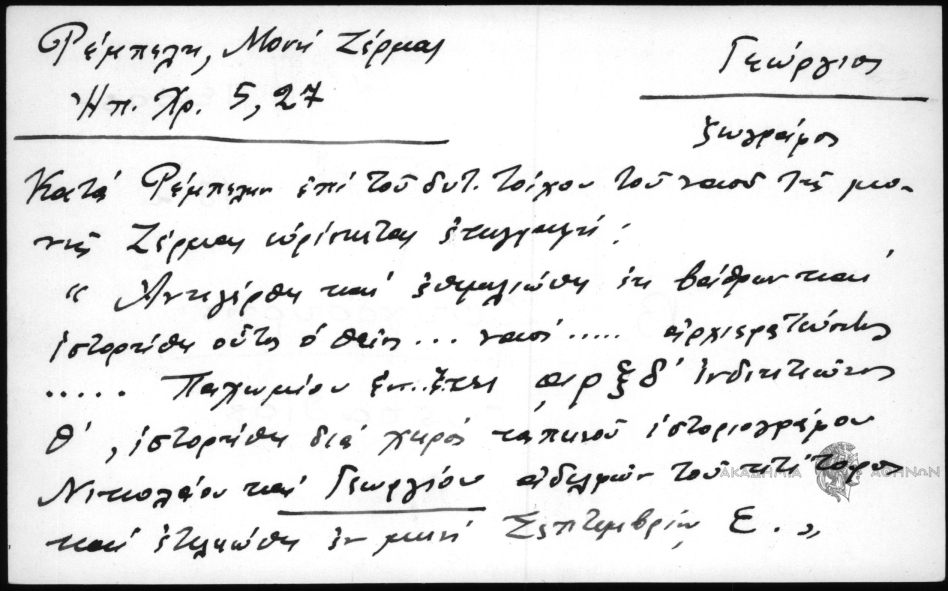 Ρέμπελη, Μονή Ζέρμας
Ἠπ. Χρ. 5, 27
Γεώργιος
ζωγράφος
Κατά Ρέμπελην ἐπί τοῦ δυτ. τοίχου τοῦ ναοῦ τῆς μο-
νῆς Ζέρμας εὑρίσκεται ἐπιγραφή:
“ Ἀνηγέρθη καί ἐθεμελιώθη ἐκ βάθρων καί
ἱστορήθη οὗτος ὁ θεῖος ... ναός ..... ἀρχιερατεύοντος
..... Παχωμίου ἐν..ἔτει αρξδ' ἰνδικτιῶνος
θ', ἱστορήθη διά χειρός ταπεινοῦ ἱστοριογράφου
Νικολάου καί Γεωργίου ἀδελφῶν τοῦ κτίτορος
καί ἐτελειώθη ἐν μηνί Σεπτεμβρίῳ Ε. „
ΑΚΑΔΗΜΙΑ ΑΘΗΝΩΝ